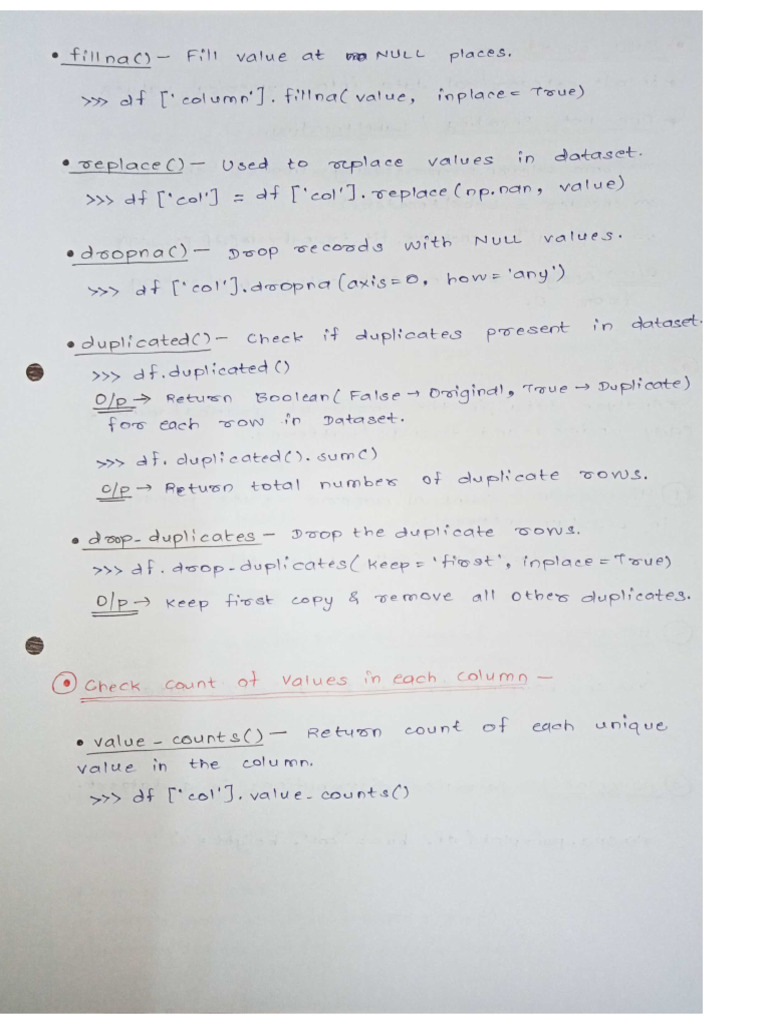 • fillna() – Fill value at NULL places.
>>> df ['column'].fillna(value, inplace = True)
• replace() – Used to replace values in dataset.
>>> df ['col'] = df ['col'].replace(np.nan, value)
• dropna() – Drop records with NULL values.
>>> df ['col'].dropna(axis=0, how='any')
• duplicated() – Check if duplicates present in dataset.
>>> df.duplicated()
O/p → Return Boolean( False → Original, True → Duplicate)
for each row in Dataset.
>>> df.duplicated().sum()
O/p → Return total number of duplicate rows.
• drop_duplicates – Drop the duplicate rows.
>>> df.drop_duplicates( keep = 'first', inplace = True)
O/p → Keep first copy & remove all other duplicates.
Check count of values in each column –
• value_counts() – Return count of each unique
value in the column.
>>> df ['col'].value_counts()